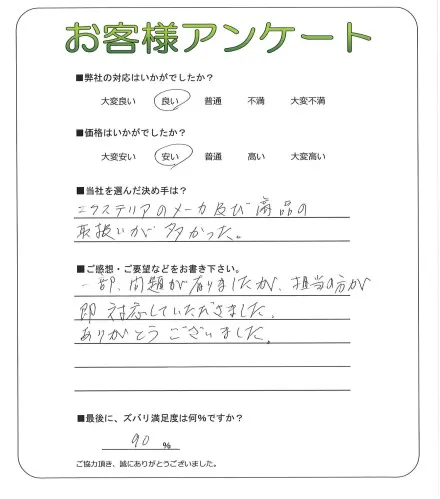 お客様アンケート
■弊社の対応はいかがでしたか？
大変良い 良い 普通 不満 大変不満
■価格はいかがでしたか？
大変安い 安い 普通 高い 大変高い
■当社を選んだ決め手は？
エクステリアのメーカ及び商品の
取扱いが多かった。
■ご感想・ご要望などをお書き下さい。
一部、問題が有りましたが、担当の方が
即対応していただきました。
ありがとうございました。
■最後に、ズバリ満足度は何％ですか？
90 ％
ご協力頂き、誠にありがとうございました。